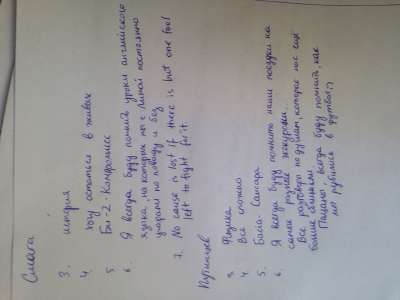 Смага
3. история
4. хочу остаться в живых
5. Би-2 - Компромисс
6. Я всегда буду помнить уроки английского
языка, на которых мы с Линой постоянно
угарали по поводу и без
7. No cause is lost if there is but one fool
left to fight for it
3. Физика
4. Всё сложно
5. Баста - Сансара
6. Я всегда буду помнить наши поездки на
самые разные экскурсии.
Все разговоры по душам, которые нас ещё
больше сближали.
Пацаны, всегда буду помнить, как
мы рубились в футбол;)